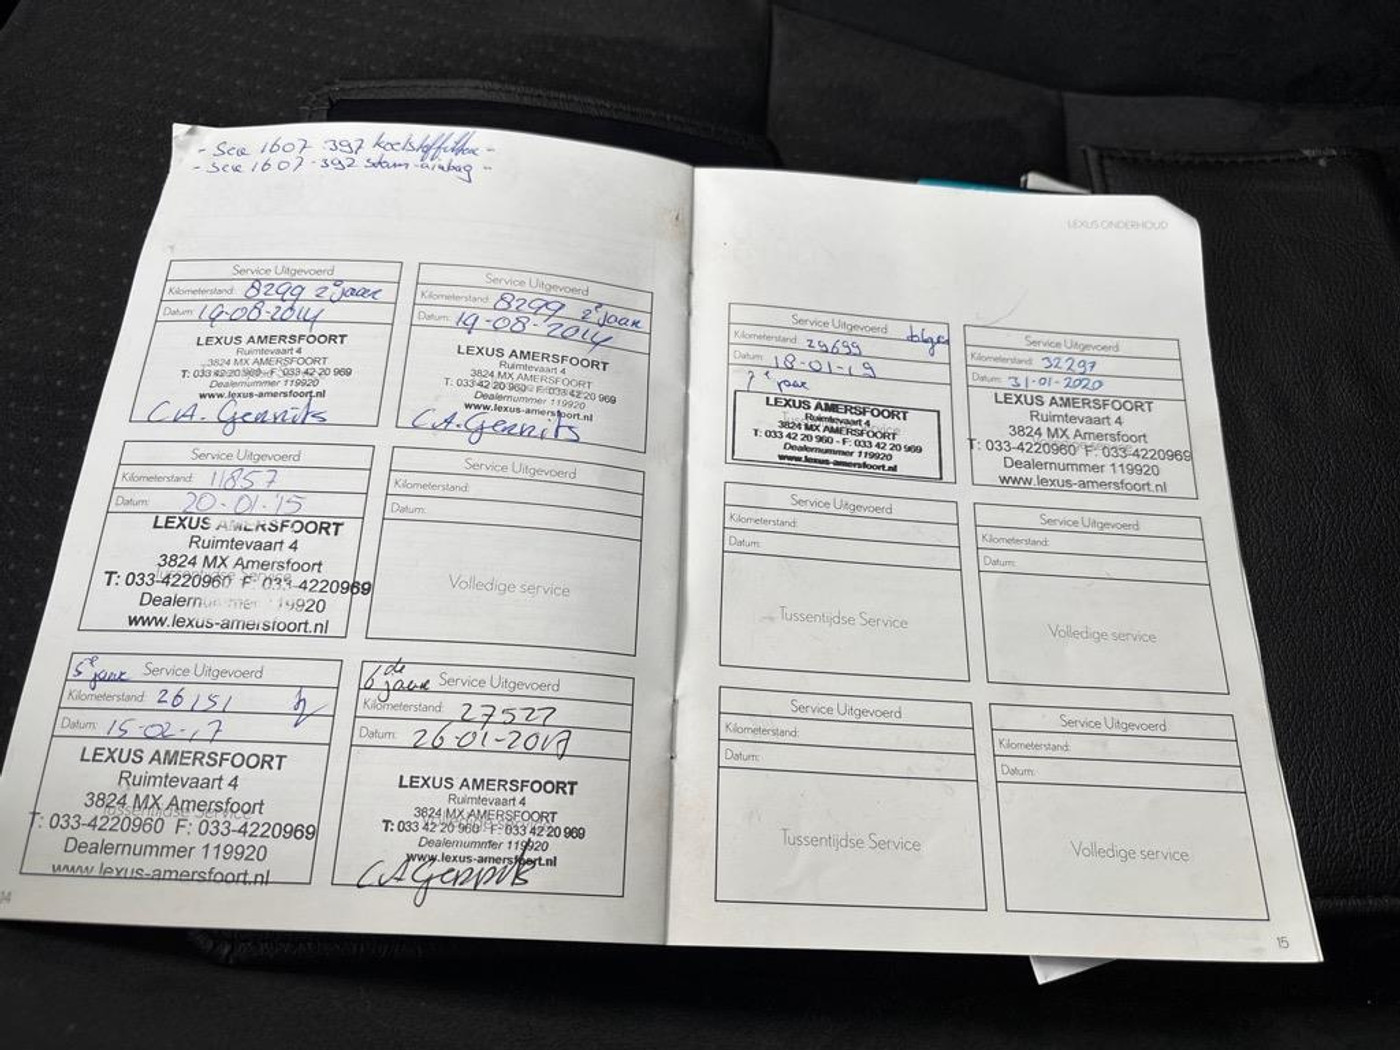 - See 1607 -397 koelstoffilter -
- See 1607 -392 stuur-airbag -
Service Uitgevoerd
Kilometerstand: 8299 2e jaar
Datum: 19-08-2014
LEXUS AMERSFOORT
Ruimtevaart 4
3824 MX AMERSFOORT
T: 033 42 20 960 - F: 033 42 20 969
Dealernummer 119920
www.lexus-amersfoort.nl
C.A. Gerrits
Service Uitgevoerd
Kilometerstand: 8299 2e jaar
Datum: 19-08-2014
LEXUS AMERSFOORT
Ruimtevaart 4
3824 MX AMERSFOORT
T: 033 42 20 960 - F: 033 42 20 969
Dealernummer 119920
www.lexus-amersfoort.nl
C.A. Gerrits
Service Uitgevoerd
Kilometerstand: 11857
Datum: 20-01-'15
LEXUS AMERSFOORT
Ruimtevaart 4
3824 MX Amersfoort
Tussentijdse Service
T: 033-4220960 F: 033-4220969
Dealernummer 119920
www.lexus-amersfoort.nl
Service Uitgevoerd
Kilometerstand:
Datum:
Volledige service
5e jaar Service Uitgevoerd
Kilometerstand: 26151
Datum: 15-02-17
LEXUS AMERSFOORT
Ruimtevaart 4
3824 MX Amersfoort
Tussentijdse Service
T: 033-4220960 F: 033-4220969
Dealernummer 119920
www.lexus-amersfoort.nl
6de jaar Service Uitgevoerd
Kilometerstand: 27527
Datum: 26-01-2017
LEXUS AMERSFOORT
Ruimtevaart 4
3824 MX AMERSFOORT
T: 033 42 20 960 - F: 033 42 20 969
Dealernummer 119920
www.lexus-amersfoort.nl
C.A. Gerrits
14
LEXUS ONDERHOUD
Service Uitgevoerd
Kilometerstand: 29699
Datum: 18-01-19
7e jaar
LEXUS AMERSFOORT
Ruimtevaart 4
3824 MX AMERSFOORT
T: 033 42 20 960 - F: 033 42 20 969
Dealernummer 119920
www.lexus-amersfoort.nl
Service Uitgevoerd
Kilometerstand: 32297
Datum: 31-01-2020
LEXUS AMERSFOORT
Ruimtevaart 4
3824 MX Amersfoort
T: 033-4220960 F: 033-4220969
Dealernummer 119920
www.lexus-amersfoort.nl
Service Uitgevoerd
Kilometerstand:
Datum:
Tussentijdse Service
Service Uitgevoerd
Kilometerstand:
Datum:
Volledige service
Service Uitgevoerd
Kilometerstand:
Datum:
Tussentijdse Service
Service Uitgevoerd
Kilometerstand:
Datum:
Volledige service
15